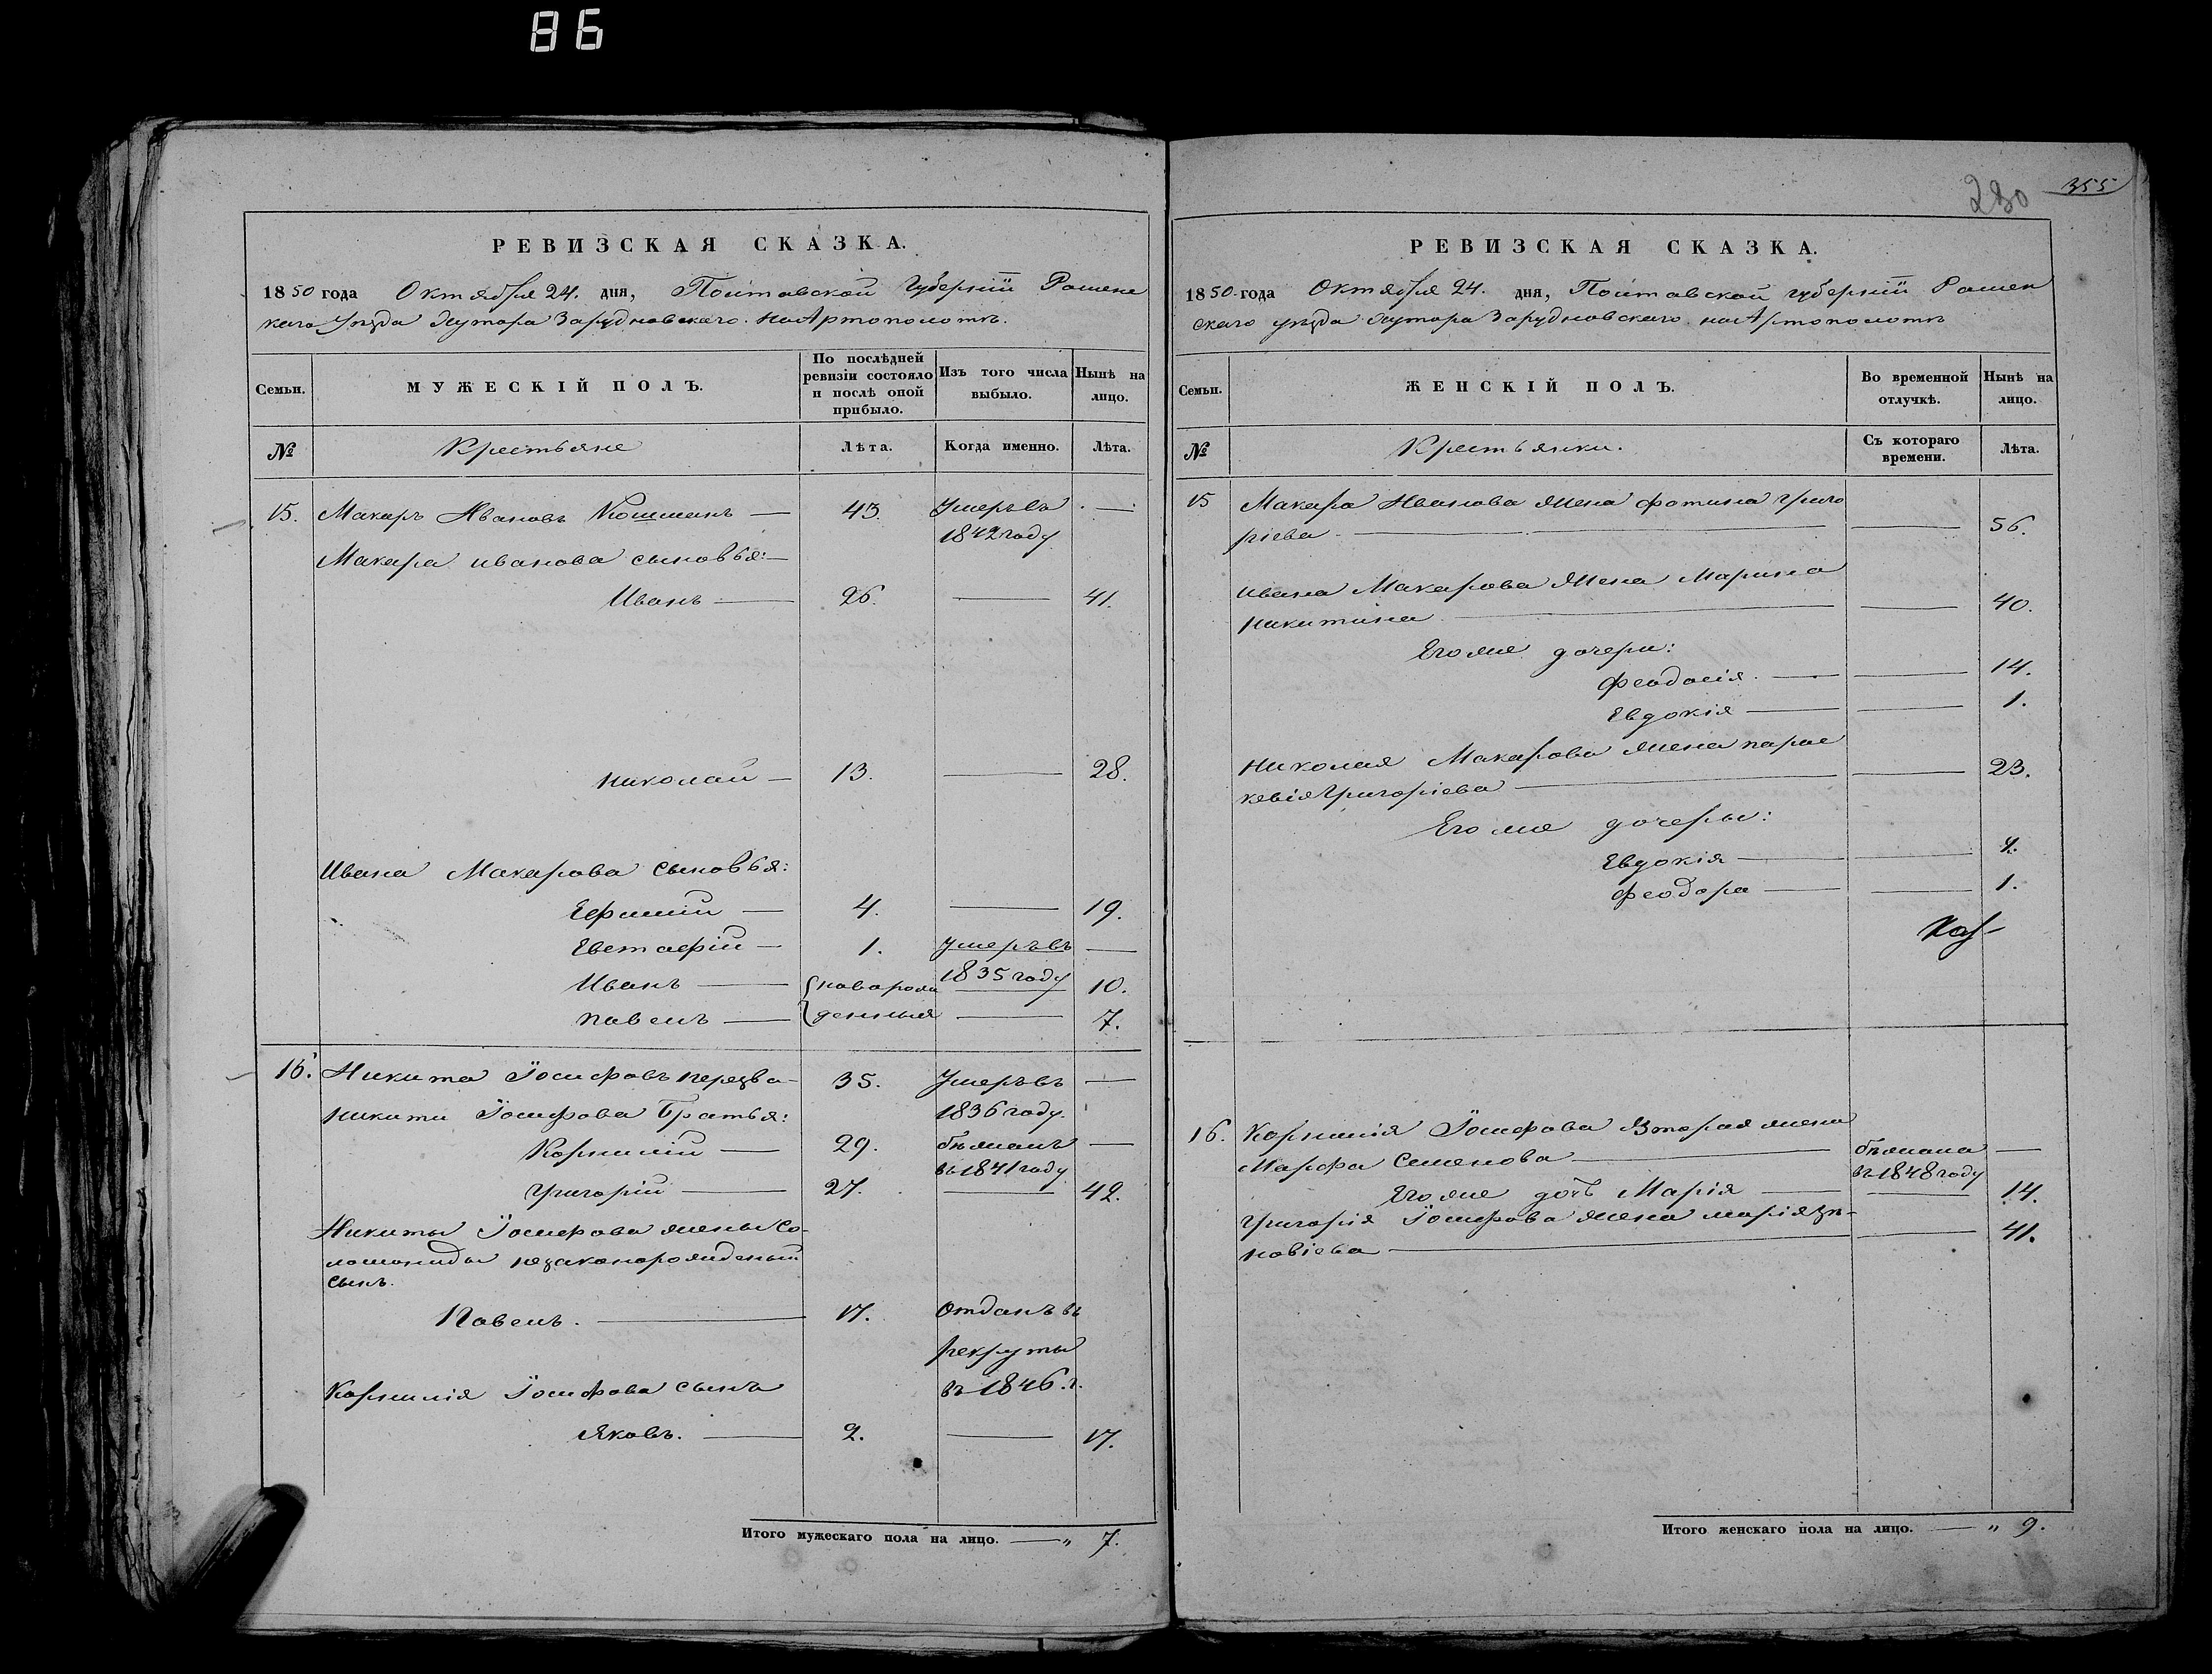 86
РЕВИЗСКАЯ СКАЗКА.
1850 года Октября 24. дня, Полтавской Губерніи Роменс
каго Уѣзда Хутора Зарудновскаго на Артополотѣ.
Семьи.
МУЖЕСКІЙ ПОЛЪ.
По послѣдней ревизіи состояло и послѣ оной прибыло.
Изъ того числа выбыло.
Нынѣ на лицо.
№
Крестьяне
Лѣта.
Когда именно.
Лѣта.
15. Макаръ Ивановъ Кошманъ — 43. Умеръ въ —
1842 году
Макара иванова сыновья: —
Иванъ — 26. — 41.
николай — 13. — 28.
Ивана Макарова сыновья:
Ефимій — 4. — 19.
Евстафій — 1. Умеръ въ —
1835 году
Иванъ — новорож — 10.
павелъ — денныя — 7.
16. Никита Іосифовъ перезва 35. Умеръ въ —
никити Іосифова Братья: 1836 году.
Корнилій — 29. бѣжалъ —
въ 1841 году
григорій — 27. — 42.
Никиты Іосифова жены Со-
ломониды незаконорожденый
сынъ.
Павелъ. — 17. Отданъ въ
рекруты
Корнилія Іосифова сынъ въ 1846. г.
Яковъ. — 2. — 17.
Итого мужескаго пола на лицо. — „ 7.
355
230
РЕВИЗСКАЯ СКАЗКА.
1850 года Октября 24. дня, Полтавской губерніи Ромен
скаго уѣзда хутора Зарудновскаго на Артополотѣ
Семьи.
ЖЕНСКІЙ ПОЛЪ.
Во временной отлучкѣ.
Нынѣ на лицо.
№
Крестьянки.
Съ котораго времени.
Лѣта.
15 Макара Иванова жена фотина григо
ріева — — 56.
ивана Макарова жена Марина
никитина — — 40.
Его же дочери:
феодосія. — — 14.
Евдокія — — 1.
николая Макарова жена парас
кевія Григоріева — — 23.
Его же дочеры:
Евдокія — — 4.
феодора — — 1.
16. Корнилія Іосифова Вторая жена
Марфа Семенова — бѣжала —
въ 1848 году
Его же дочь Марія — — 14.
григорія Іосифова жена марія зи-
новіева — — 41.
Итого женскаго пола на лицо. — „ 9.